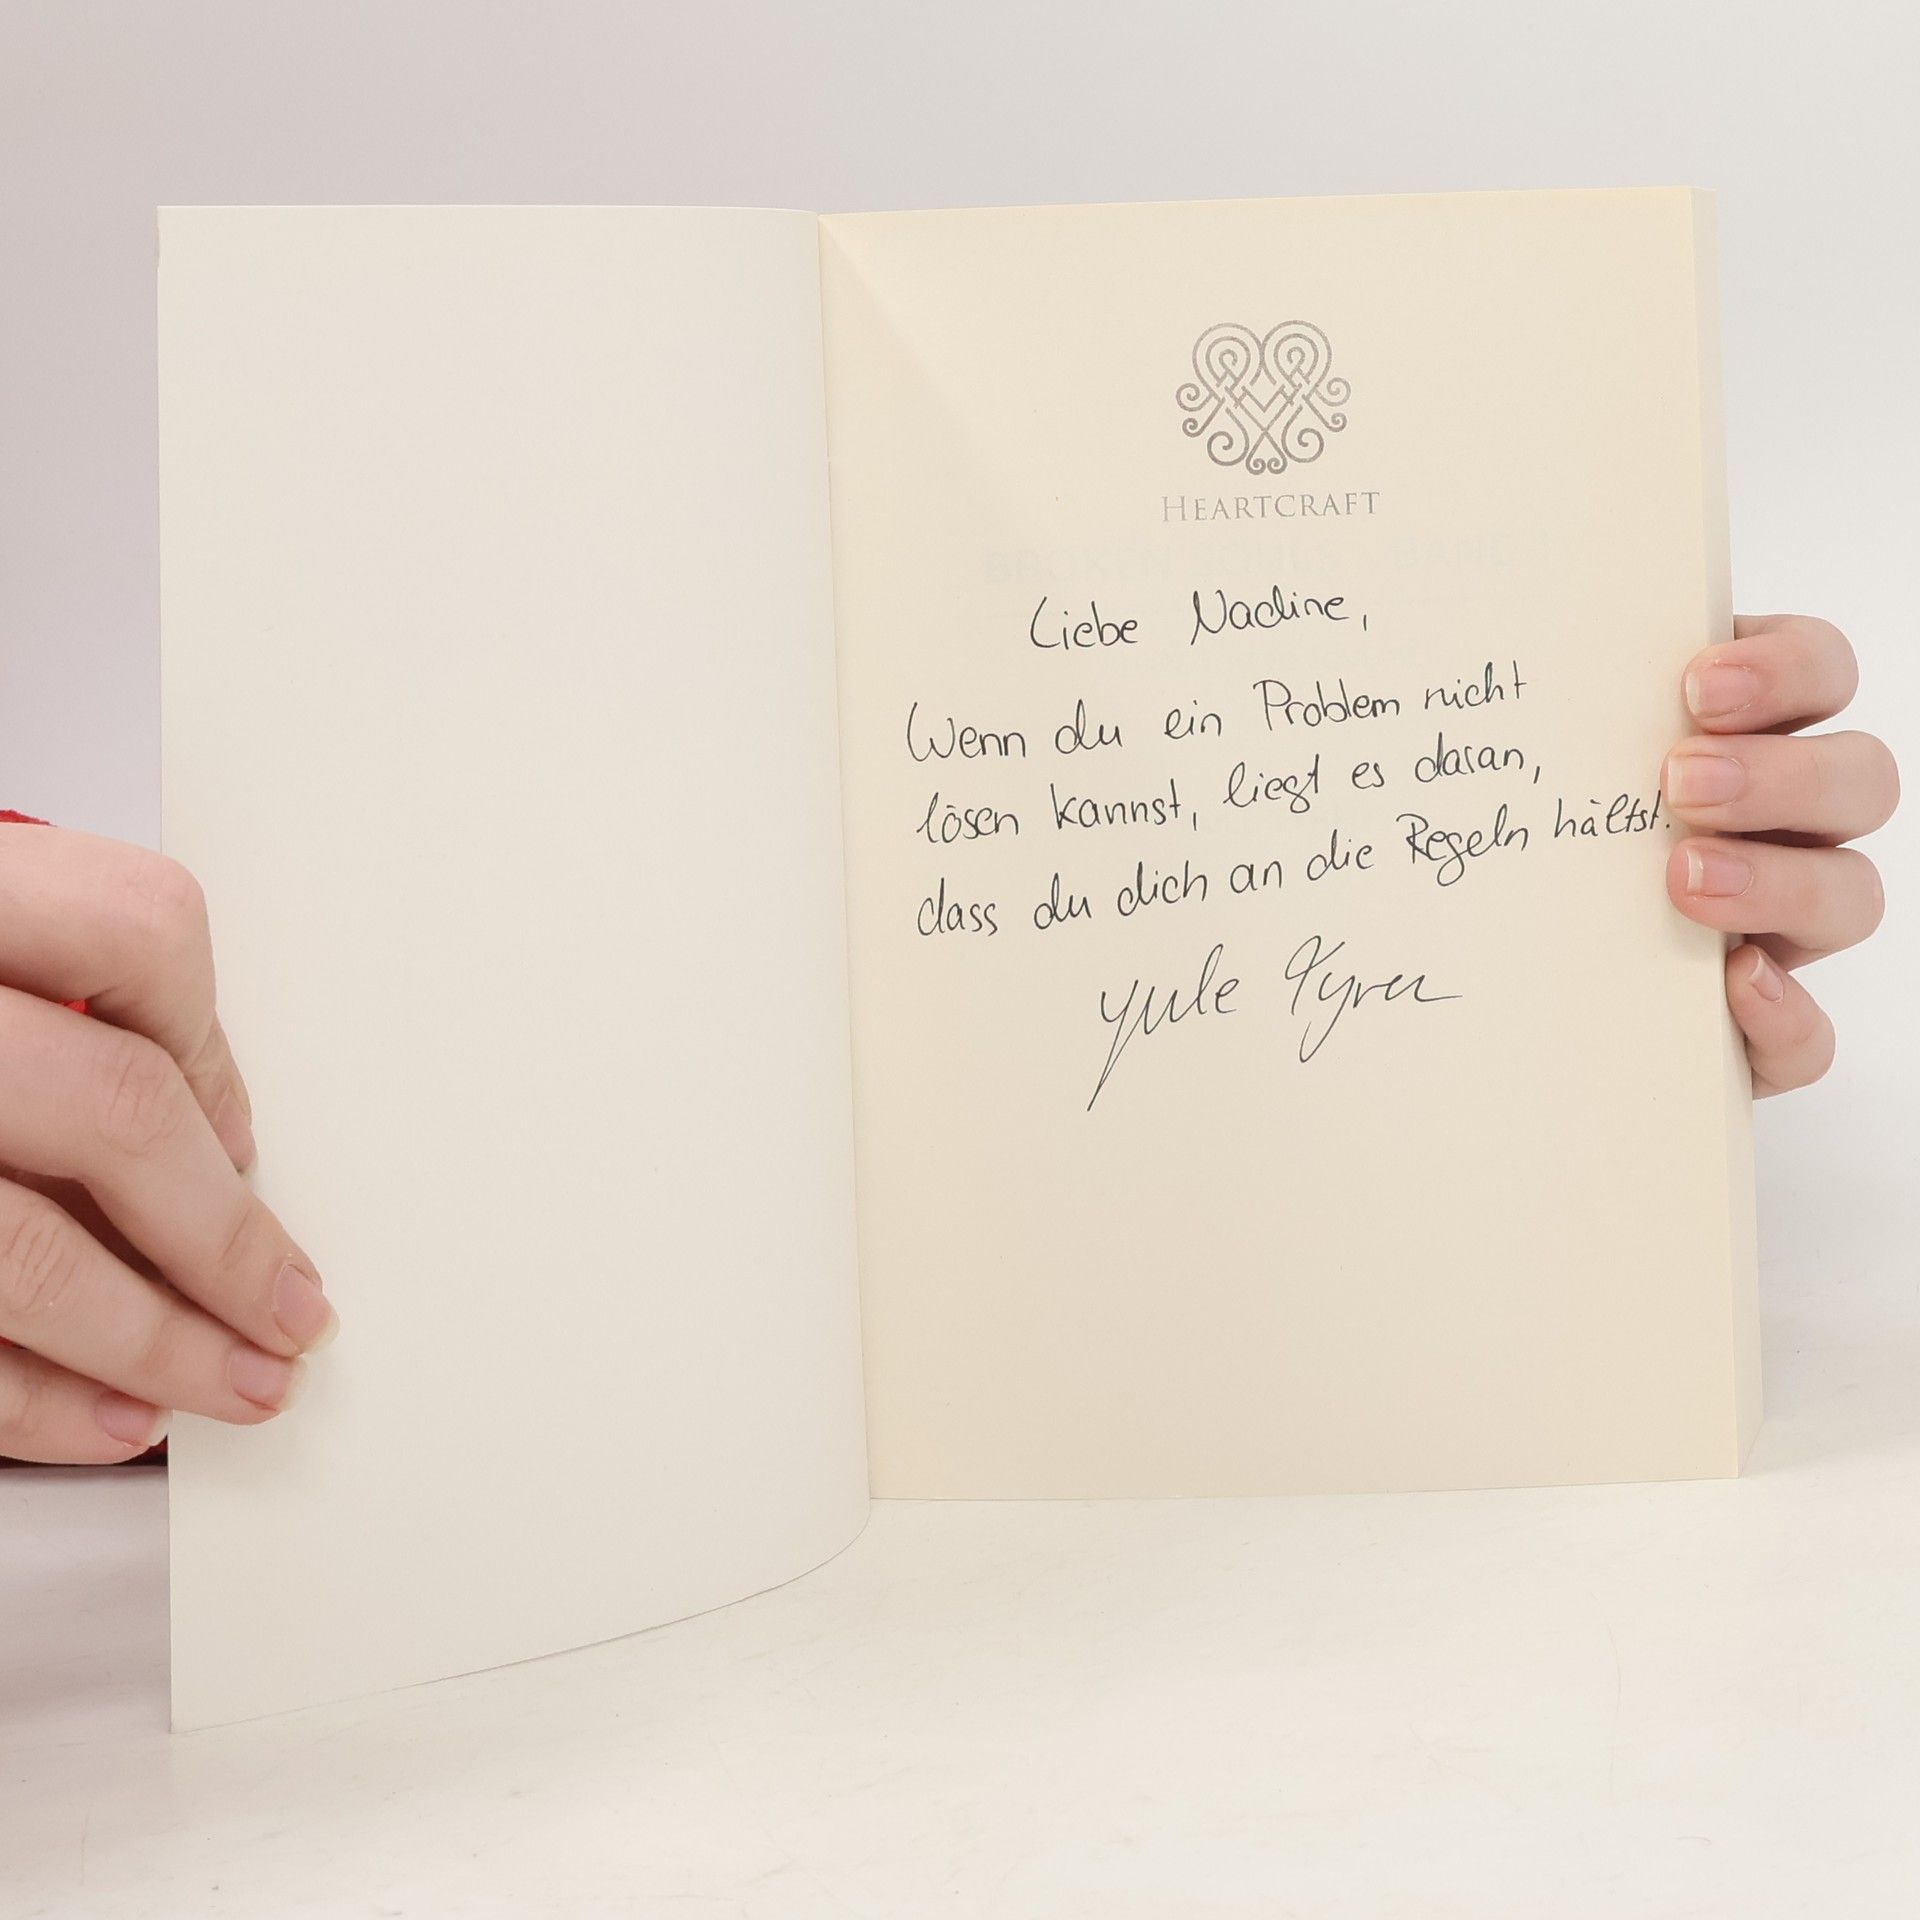 HEARTCRAFT
Liebe Nadine,
Wenn du ein Problem nicht
lösen kannst, liegt es daran,
dass du dich an die Regeln hältst.
Yule